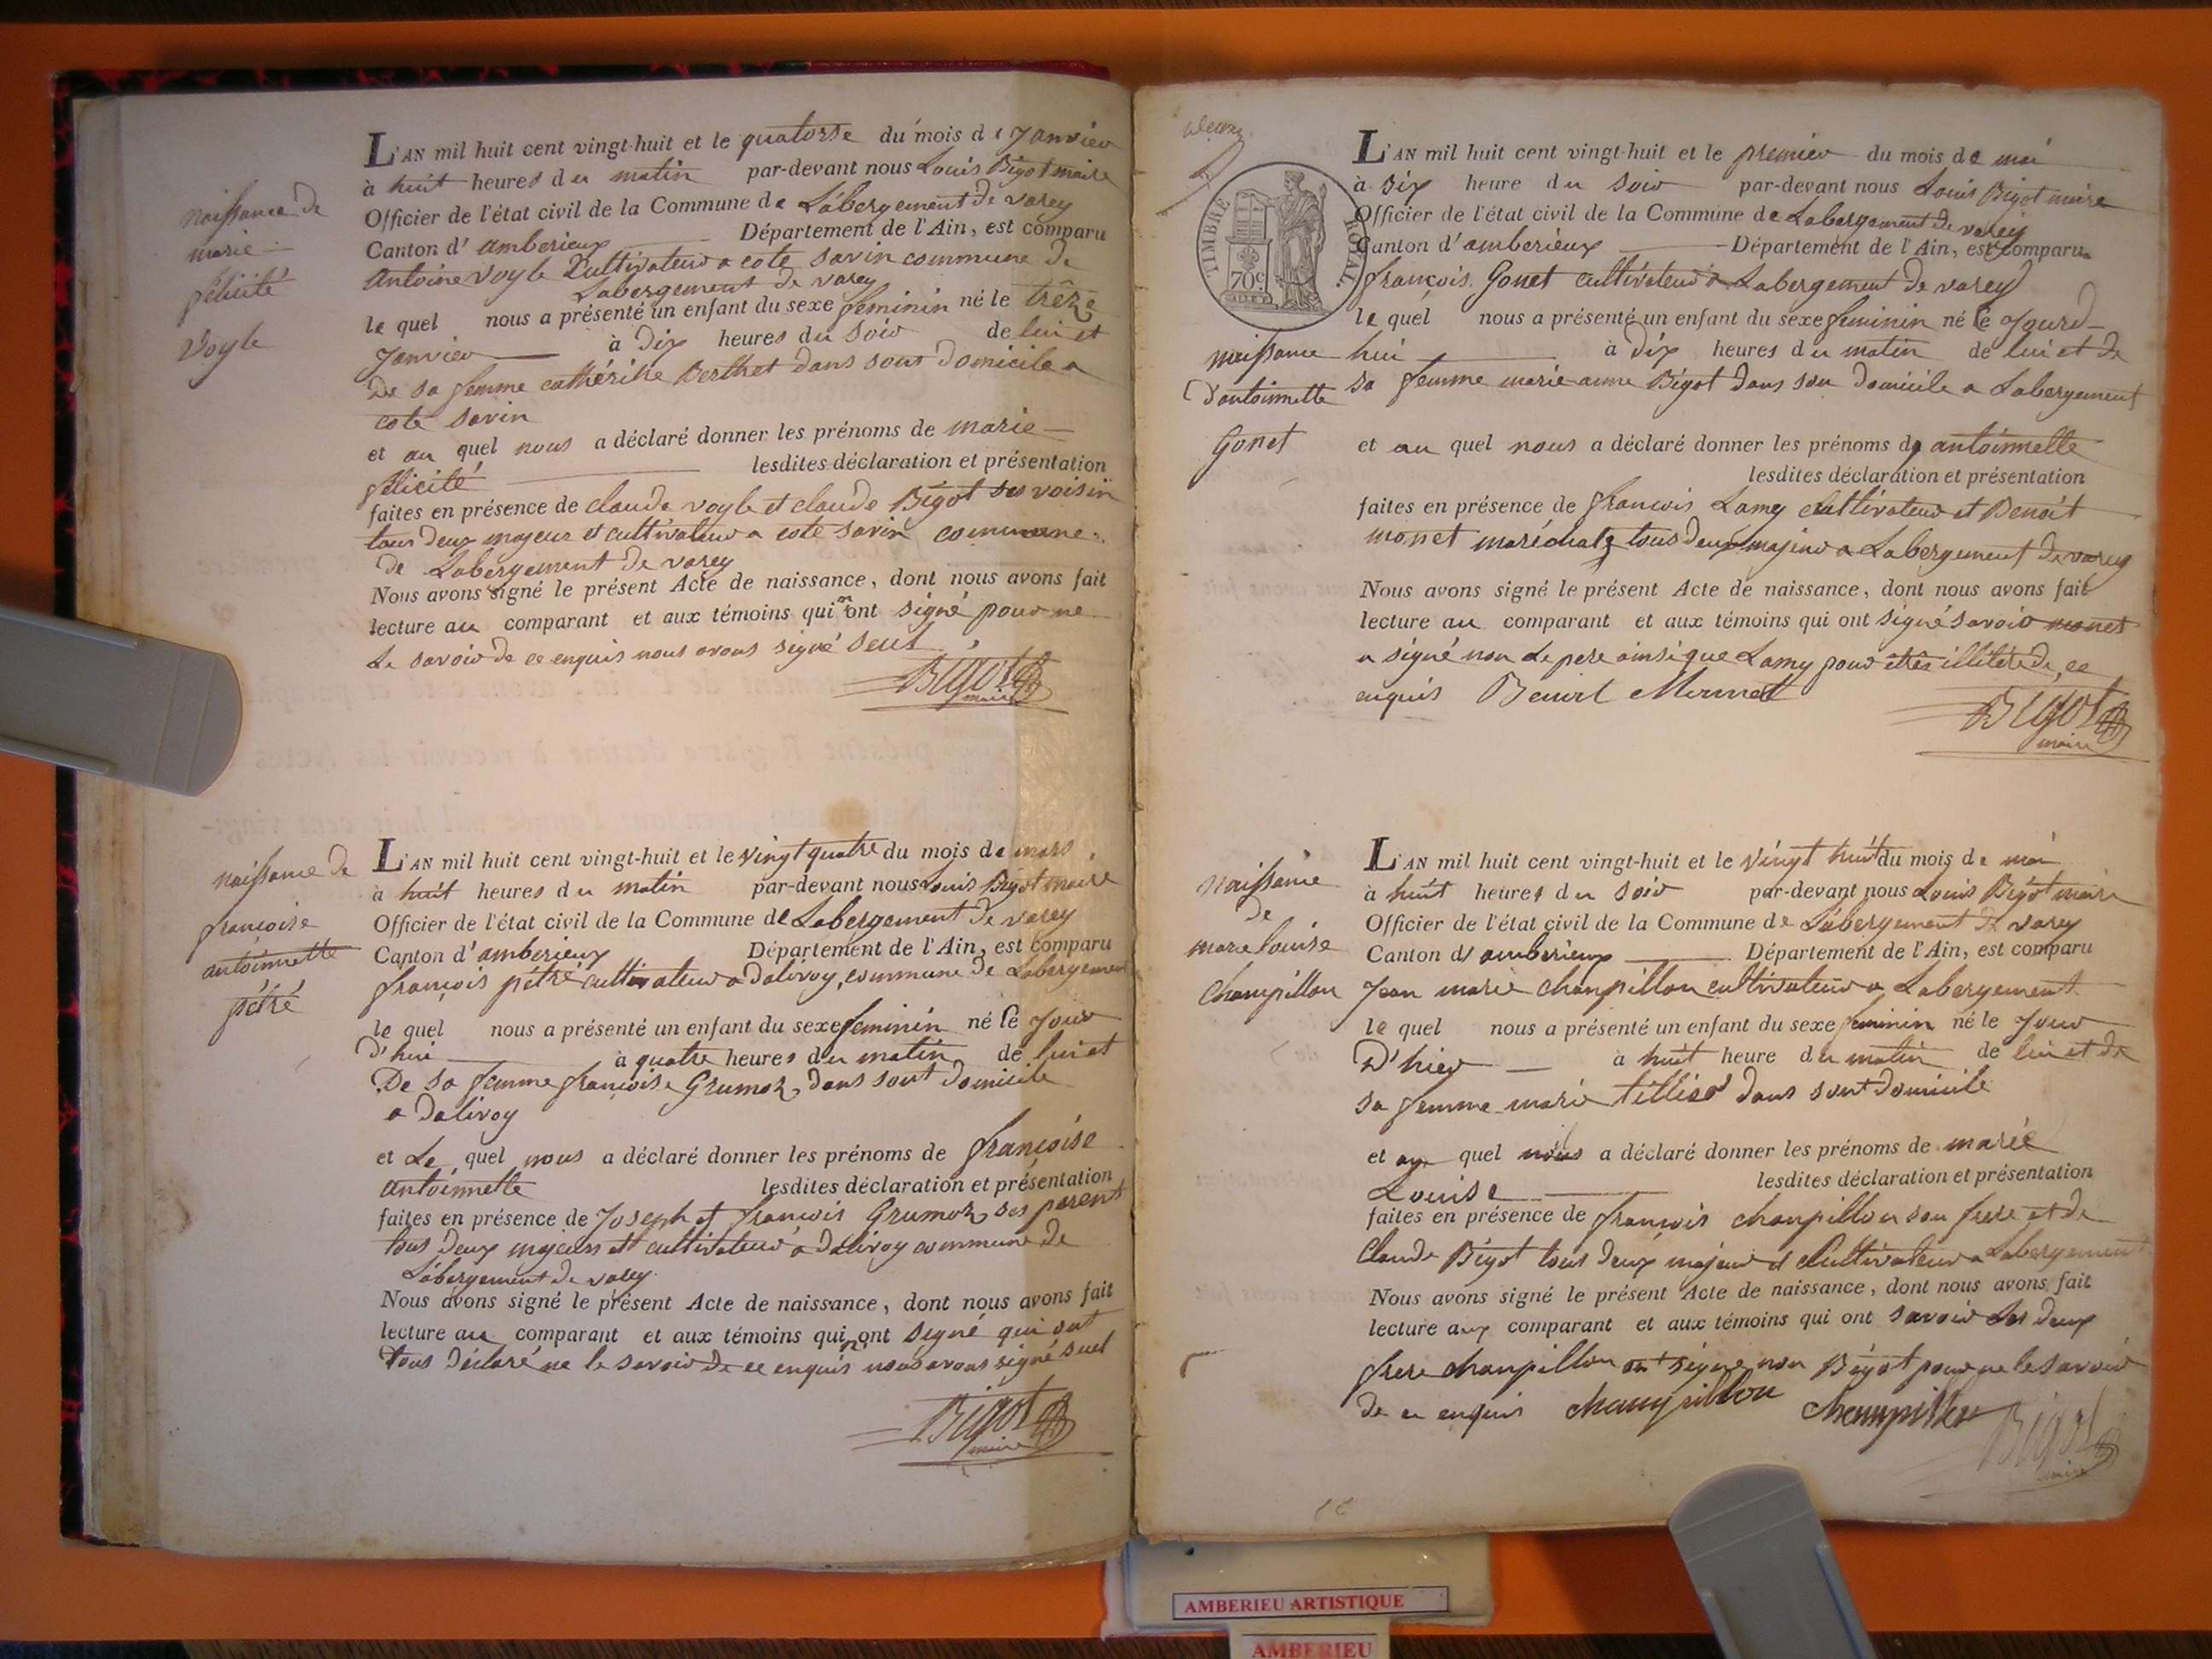 naissance de
marie
félicité
Voyle
L'AN mil huit cent vingt-huit et le quatorse du mois de Janvier
à huit heures du matin par-devant nous Louis Bigot maire
Officier de l'état civil de la Commune de Labergement de varey
Canton d'amberieux Département de l'Ain, est comparu
Antoine voyle Cultivateur a cote savin commune de
Labergement de varey
le quel nous a présenté un enfant du sexe feminin né le trêze
Janvier à dix heures du soir de lui et
De sa femme cathérine Berthet dans sont Domicile a
coté savin
et au quel nous a déclaré donner les prénoms de marie
félicité lesdites déclaration et présentation
faites en présence de claude voyle et claude Bigot ses voisin
tous deux majeur et cultivateur a coté savin commune
de Labergement de varey
Nous avons signé le présent Acte de naissance, dont nous avons fait
lecture au comparant et aux témoins qui n'ont signé pour ne
Le savoir de ce enquis nous avons signé seul
Bigot
maire
naissance de
francoise
antoinnette
pétré
L'AN mil huit cent vingt-huit et le vingt quatre du mois de mars
à huit heures du matin par-devant nous Louis Bigot maire
Officier de l'état civil de la Commune de Labergement de varey
Canton d'amberieux Département de l'Ain, est comparu
françois pétré cultivateur a Dalivoy, commune de Labergement
le quel nous a présenté un enfant du sexe feminin né le Jour
D'hui à quatre heures du matin de lui et
De sa femme françoise Grumoz, dans sont domicile
a Dalivoy
et Le quel nous a déclaré donner les prénoms de françoise
antoinnette lesdites déclaration et présentation
faites en présence de Joseph et francois Grumoz ses parent
tous deux majeurs et cultivateur a Dalivoy commune de
Labergement de varey
Nous avons signé le présent Acte de naissance, dont nous avons fait
lecture au comparant et aux témoins qui n'ont signé qui ont
tous déclaré ne le savoir de ce enquis nous avons signé suel
Bigot
maire
TIMBRE ROYAL
70 c
L'AN mil huit cent vingt-huit et le premier du mois de mai
à six heure du soir par-devant nous Louis Bigot maire
Officier de l'état civil de la Commune de Labergement de varey
Canton d'amberieux Département de l'Ain, est comparu
françois Gonet cultivateur a Labergement de varey
le quel nous a présenté un enfant du sexe feminin né le Jourd-
hui à dix heures du matin de lui et de
sa femme marie anne Bigot dans son domicile a Labergement
naissance
D'antoinnette
Gonet
et au quel nous a déclaré donner les prénoms de antoinnette
lesdites déclaration et présentation
faites en présence de francois Lamy cultivateur et Benoit
monet maréchal tous deux majeur a Labergement de varey
Nous avons signé le présent Acte de naissance, dont nous avons fait
lecture au comparant et aux témoins qui ont signé savoir monet
a signé non Le pere ainsi que Lamy pour etres illétéré de ce
enquis Benoit Monnet
Bigot
maire
Naissance
de
marie louise
Champillon
L'AN mil huit cent vingt-huit et le vingt huit du mois de mai
à huit heures du soir par-devant nous Louis Bigot maire
Officier de l'état civil de la Commune de Labergement de varey
Canton d'amberieux Département de l'Ain, est comparu
Jean marie champillon cultivateur a Labergement
le quel nous a présenté un enfant du sexe feminin né le Jour
D'hier à huit heure du matin de lui et de
sa femme marie tillier dans sont domicile
et au quel nous a déclaré donner les prénoms de marie
Louise lesdites déclaration et présentation
faites en présence de françois champillon son frere et de
Claude Bigot tous deux majeur et Cultivateur a Labergement
Nous avons signé le présent Acte de naissance, dont nous avons fait
lecture aux comparant et aux témoins qui ont savoir Les deux
frere champillon ont signe non Bigot pour ne le savoir
de ce enquis champillon champillon
Bigot
maire
AMBERIEU ARTISTIQUE
AMBERIEU